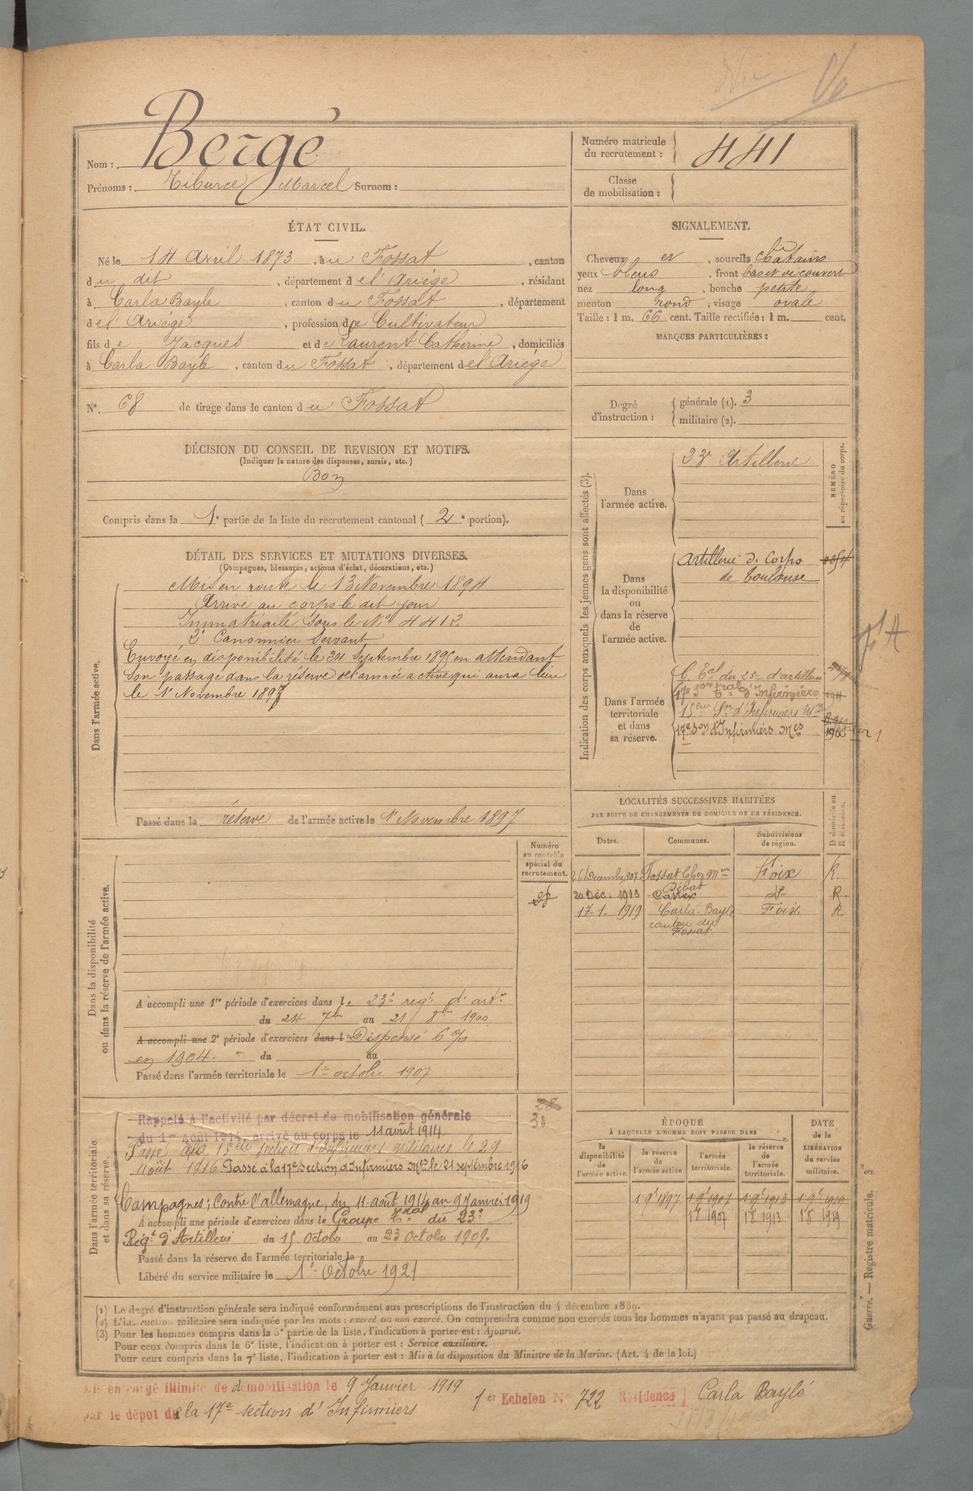 Nom : Bergé
Prénoms : Tiburce Marcel Surnom :
Numéro matricule du recrutement : 441
Classe de mobilisation :
ÉTAT CIVIL.
Né le 14 Avril 1873, au Fossat, canton
du dit, département de l'Ariége, résidant
à Carla Bayle, canton du Fossat, département
de l'Ariége, profession de Cultivateur
fils de Jacques et de Laurent Catherine, domiciliés
à Carla Bayle, canton du Fossat, département de l'Ariége
N°. 68 de tirage dans le canton du Fossat
SIGNALEMENT.
Cheveux et, sourcils chatains
yeux bleus, front bas et découvert
nez long, bouche petite
menton rond, visage ovale
Taille : 1 m. 66 cent. Taille rectifiée : 1 m. cent.
MARQUES PARTICULIÈRES :
Degré d'instruction : générale (1). 3
militaire (2).
DÉCISION DU CONSEIL DE REVISION ET MOTIFS.
(Indiquer la nature des dispenses, sursis, etc.)
Bon
Compris dans la 1e partie de la liste du recrutement cantonal (2e portion).
DÉTAIL DES SERVICES ET MUTATIONS DIVERSES.
(Campagnes, blessures, actions d'éclat, décorations, etc.)
Dans l'armée active.
Mis en route le 13 Novembre 1894
Arrivé au corps le dit jour
Immatriculé sous le N° 4412
2e Canonnier Servant
Envoyé en disponibilité le 24 Septembre 1895 en attendant
son passage dans la réserve de l'armée active qui aura lieu
le 1er Novembre 1897
Passé dans la réserve de l'armée active le 1er Novembre 1897
Indication des corps auxquels les jeunes gens sont affectés (3).
NUMÉRO au répertoire du corps.
Dans l'armée active.
23e Artillerie
Dans la disponibilité ou dans la réserve de l'armée active.
Artillerie de Corps
de Toulouse
Dans l'armée territoriale et dans sa réserve.
17e Son d'Infirmiers Mres
LOCALITÉS SUCCESSIVES HABITÉES
PAR SUITE DE CHANGEMENTS DE DOMICILE OU DE RÉSIDENCE.
Dates. Communes. Subdivisions de région. D domicile ou R résidence.
Fossat Chez Mme Débat Foix R.
20 Déc. 1913 do R.
17-1-1919 Carla-Bayle canton du Fossat Foix R
Numéro au contrôle spécial du recrutement.
Dans la disponibilité ou dans la réserve de l'armée active.
A accompli une 1re période d'exercices dans le 23e régt d'artie
du 24 7bre au 21 8bre 1900
A accompli une 2e période d'exercices dans l Dispensé 6%
en 1904. du au
Passé dans l'armée territoriale le 1er octobre 1907
Dans l'armée territoriale et dans sa réserve.
Rappelé à l'activité par décret de mobilisation générale
du 1er août 1914, arrivé au corps le 11 août 1914
Passé à la 15ème section d'Infirmiers militaires le 29
Août 1916 Passé à la 17e Section d'Infirmiers Mres le 21 septembre 1916
Campagnes : Contre l'allemagne, du 11 août 1914 au 9 janvier 1919
A accompli une période d'exercices dans le Groupe Tral du 23e
Régt d'Artillerie du 15 Octobre au 23 Octobre 1909.
Passé dans la réserve de l'armée territoriale le
Libéré du service militaire le 1er Octobre 1921
ÉPOQUE
À LAQUELLE L'HOMME DOIT PASSER DANS
la disponibilité de l'armée active. la réserve de l'armée active. l'armée territoriale. la réserve de l'armée territoriale.
DATE de la LIBÉRATION du service militaire.
(1) Le degré d'instruction générale sera indiqué conformément aux prescriptions de l'instruction du 4 décembre 1889.
(2) L'instruction militaire sera indiquée par les mots : exercé ou non exercé. On comprendra comme non exercés tous les hommes n'ayant pas passé au drapeau.
(3) Pour les hommes compris dans la 5e partie de la liste, l'indication à porter est : Ajourné.
Pour ceux compris dans la 6e liste, l'indication à porter est : Service auxiliaire.
Pour ceux compris dans la 7e liste, l'indication à porter est : Mis à la disposition du Ministre de la Marine. (Art. 4 de la loi.)
Guerre. — Registre matricule.
Mis en congé illimité de démobilisation le 9 Janvier 1919
par le dépôt de la 17e section d'Infirmiers
1er Echelon N° 722 Résidence Carla Baylé